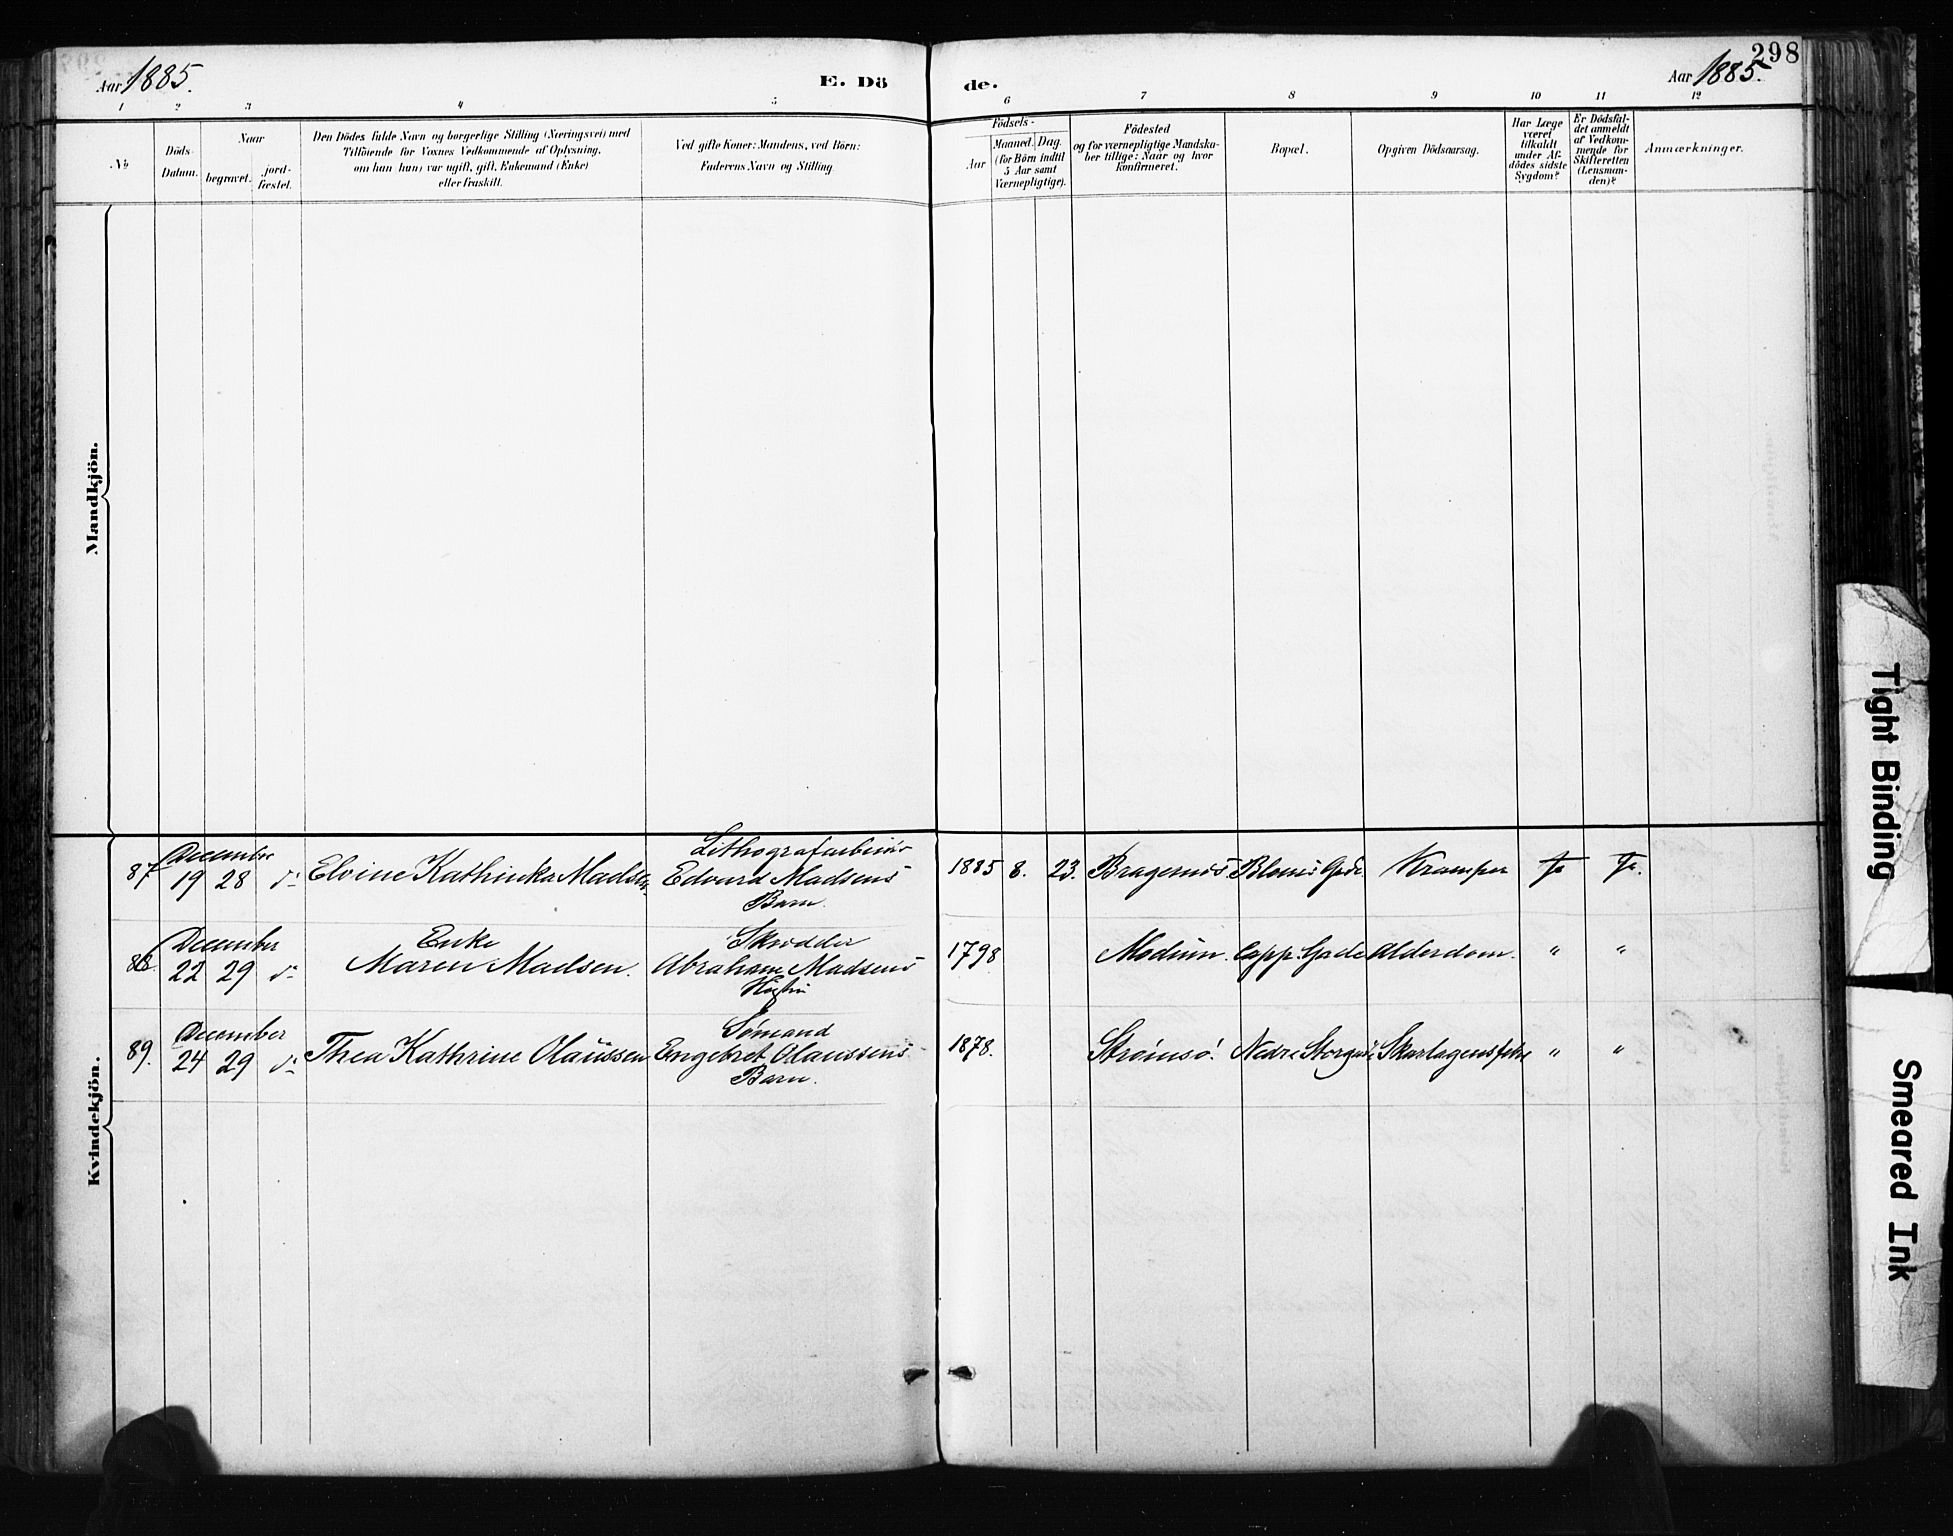 298
Aar 1885.
E. Döde.
Aar 1885.
1 2 3 4 5 6 7 8 9 10 11 12
No
Döds-Datum.
Naar
begravet.
jordfæstet.
Den Dödes fulde Navn og borgerlige Stilling (Næringsvei) med
Tilföiende for Voxnes Vedkommende af Oplysning,
om han (hun) var ugift, gift, Enkemand (Enke)
eller fraskilt.
Ved gifte Koner: Mandens, ved Börn:
Faderens Navn og Stilling
Födsels-
Aar
Maaned. Dag.
(for Börn indtil
5 Aar samt
Værnepligtige).
Födested
og for værnepligtige Mandska-
ber tillige: Naar og hvor
konfirmeret.
Bopæl.
Opgiven Dödsaarsag.
Har Læge
været
tilkaldt
under Af-
dödes sidste
Sygdom?
Er Dödsfal-
det anmeldt
af Vedkom-
mende for
Skifteretten
(Lensman-
den)?
Anmærkninger.
Mandkjön.
Kvindekjön.
December Lithografarbeider
87 19 28 do Elvine Kathinka Madsen Edvard Madsens 1885 8. 23. Bragernæs. Bloms Gade Kramper Ja Ja.
Barn.
December Enke Skrædder
88. 22 29 do Maren Madsen. Abraham Madsens 1798 Modum. Capp. Gade Alderdom. " "
December Sömand
89. 24 29 do Thea Kathrine Olaussen Engebret Olaussens 1878. Strömsö. Nedre Storgade Skarlagensfeber " "
Barn.
Tight Binding
Smeared Ink